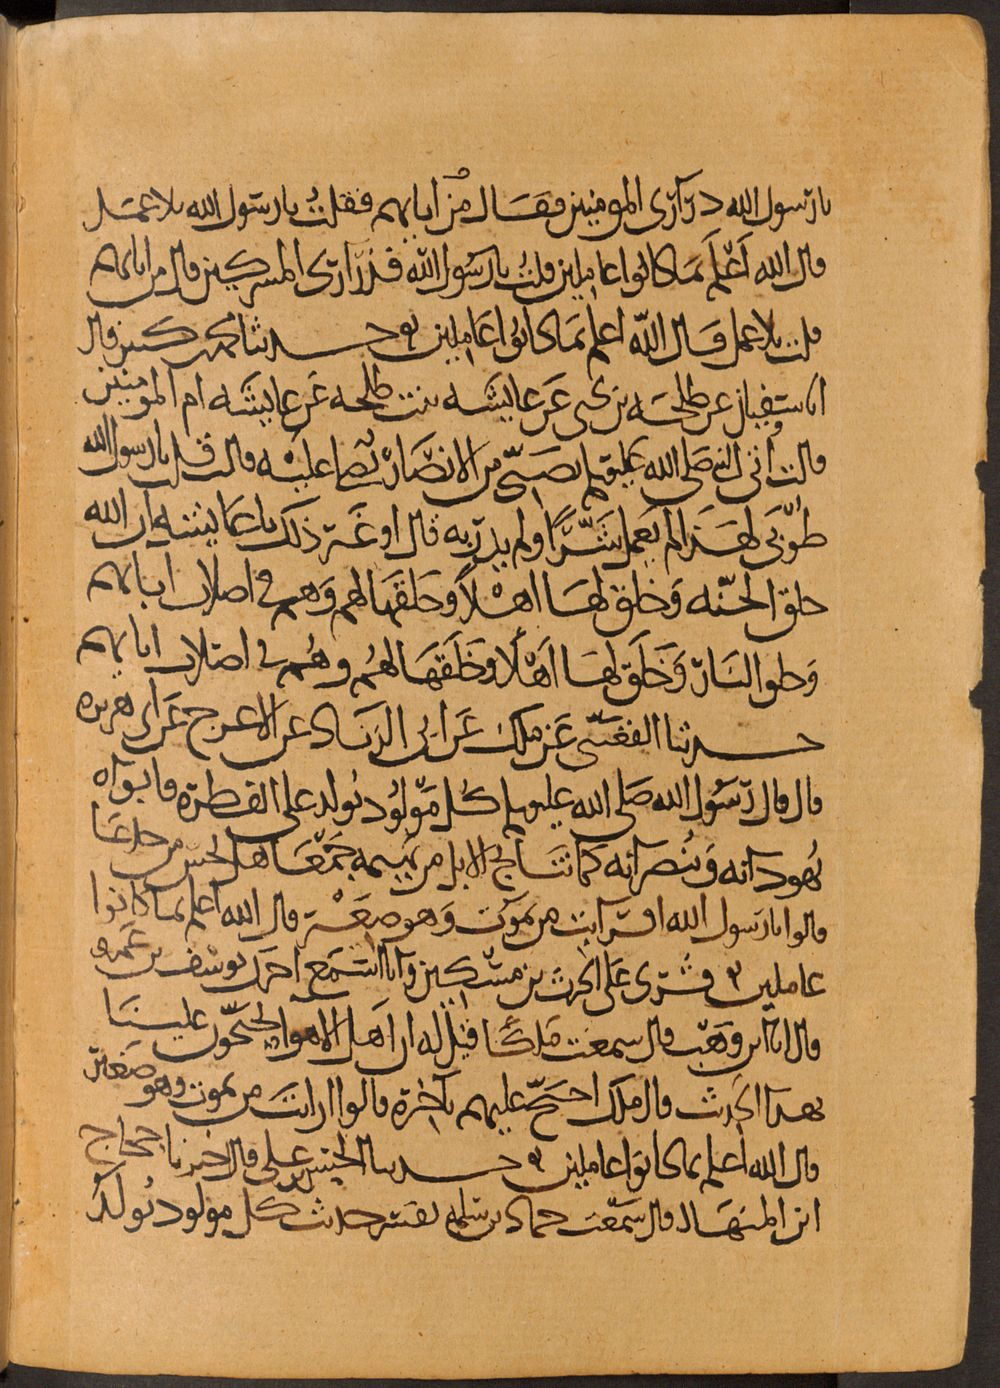 يا رسول الله ذراري المومنين فقال من ابايهم فقلت يا رسول الله بلا عمل
قال الله اعلم بما كانوا عاملين قلت يا رسول الله فذراري المشركين قال من ابايهم
قلت بلا عمل قال الله اعلم بما كانوا عاملين حدثنا محمد بن كثير قال
انا سفيان عن طلحة بن يحيى عن عايشه بنت طلحه عن عايشه ام المومنين
قالت اتي النبي صلى الله عليه وسلم بصبي من الانصار يصلي عليه قالت قلت يا رسول الله
طوبى لهذا لم يعمل شرا ولم يدر به قال او غير ذلك يا عايشه ان الله
خلق الجنه وخلق لها اهلا وخلقها لهم وهم في اصلاب ابايهم
وخلق النار وخلق لها اهلا وخلقها لهم وهم في اصلاب ابايهم
حدثنا القعنبي عن ملك عن ابي الزناد عن الاعرج عن ابي هريره
قال قال رسول الله صلى الله عليه وسلم كل مولود يولد على الفطرة فابواه
يهودانه وينصرانه كما تناتج الابل من بهيمه جمعا هل تحس من جدعا
قالوا يا رسول الله افرايت من يموت وهو صغير قال الله اعلم بما كانوا
عاملين قرى على الحرث بن مسكين وانا اسمع اخبرك يوسف بن عمرو
قال انا ابن وهب قال سمعت ملكا قيل له ان اهل الاهوا يحتجون علينا
بهذا الحديث قال ملك احتج عليهم باخره قالوا ارايت من يموت وهو صغير
قال الله اعلم بما كانوا عاملين حدثنا الحسن بن علي قال اخبرنا حجاج
ابن المنهال قال سمعت حماد بن سلمه يفسر حديث كل مولود يولد